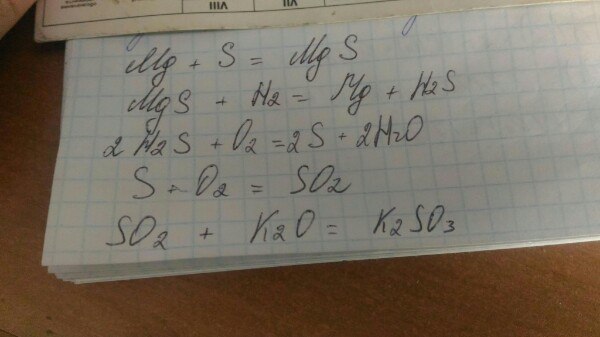 VIII VII
Mg + S = MgS
MgS + H2 = Mg + H2S
2 H2S + O2 = 2S + 2H2O
S + O2 = SO2
SO2 + K2O = K2SO3